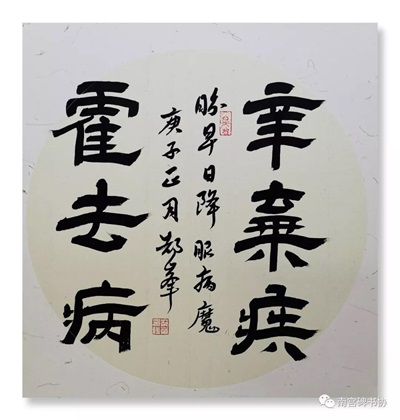 辛棄疾
盼早日降服病魔
庚子正月郝峯
霍去病
南宫碑书协